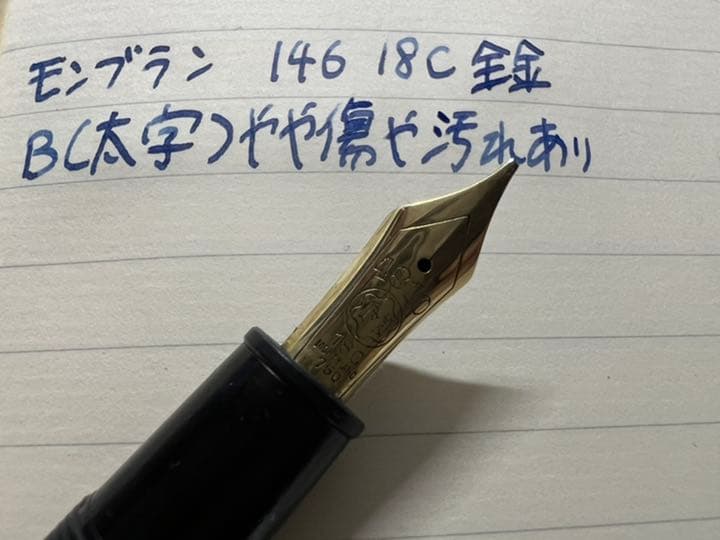 モンブラン 146 18C 全金
B(太字)やや傷や汚れあり
750